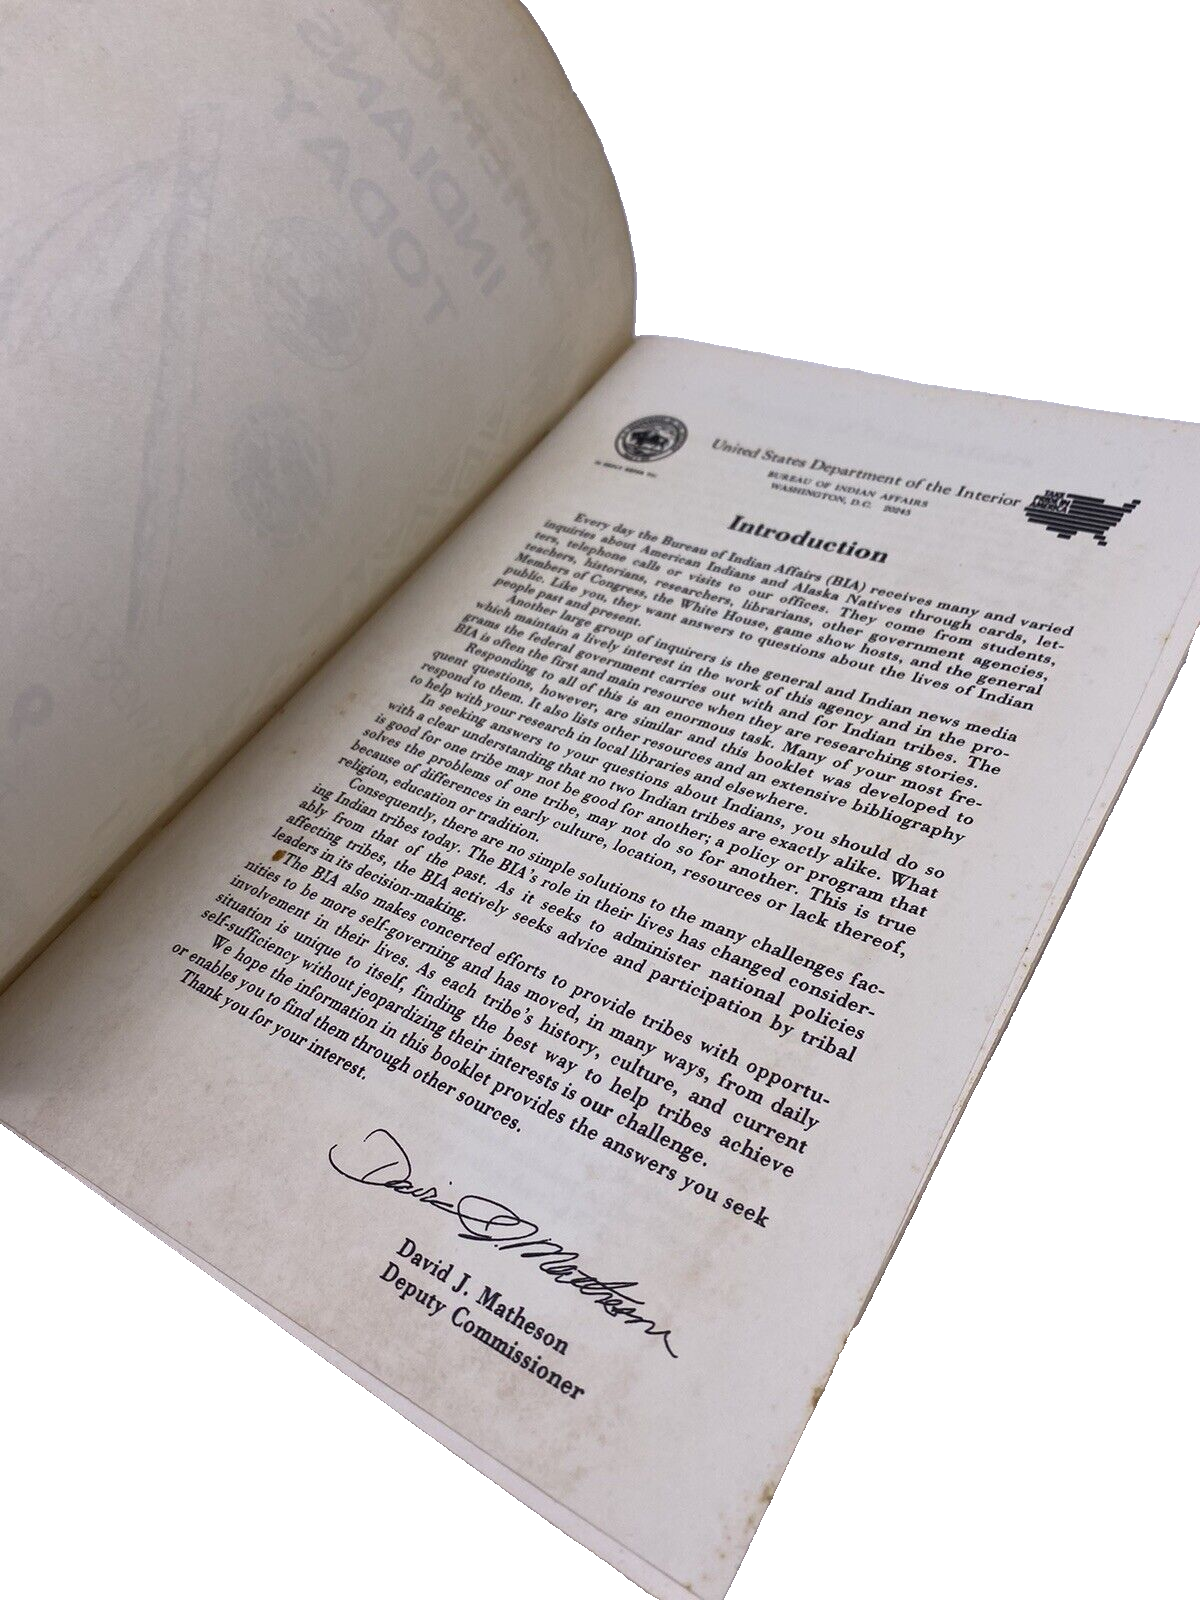 AMERICAN
INDIANS
TODAY
United States Department of the Interior
BUREAU OF INDIAN AFFAIRS
WASHINGTON, D.C. 20245
IN REPLY REFER TO:
TAKE
PRIDE IN
AMERICA
Introduction
Every day the Bureau of Indian Affairs (BIA) receives many and varied
inquiries about American Indians and Alaska Natives through cards, let-
ters, telephone calls or visits to our offices. They come from students,
teachers, historians, researchers, librarians, other government agencies,
Members of Congress, the White House, game show hosts, and the general
public. Like you, they want answers to questions about the lives of Indian
people past and present.
Another large group of inquirers is the general and Indian news media
which maintain a lively interest in the work of this agency and in the pro-
grams the federal government carries out with and for Indian tribes. The
BIA is often the first and main resource when they are researching stories.
Responding to all of this is an enormous task. Many of your most fre-
quent questions, however, are similar and this booklet was developed to
respond to them. It also lists other resources and an extensive bibliography
to help with your research in local libraries and elsewhere.
In seeking answers to your questions about Indians, you should do so
with a clear understanding that no two Indian tribes are exactly alike. What
is good for one tribe may not be good for another; a policy or program that
solves the problems of one tribe, may not do so for another. This is true
because of differences in early culture, location, resources or lack thereof,
religion, education or tradition.
Consequently, there are no simple solutions to the many challenges fac-
ing Indian tribes today. The BIA's role in their lives has changed consider-
ably from that of the past. As it seeks to administer national policies
affecting tribes, the BIA actively seeks advice and participation by tribal
leaders in its decision-making.
The BIA also makes concerted efforts to provide tribes with opportu-
nities to be more self-governing and has moved, in many ways, from daily
involvement in their lives. As each tribe's history, culture, and current
situation is unique to itself, finding the best way to help tribes achieve
self-sufficiency without jeopardizing their interests is our challenge.
We hope the information in this booklet provides the answers you seek
or enables you to find them through other sources.
Thank you for your interest.
David J. Matheson
David J. Matheson
Deputy Commissioner